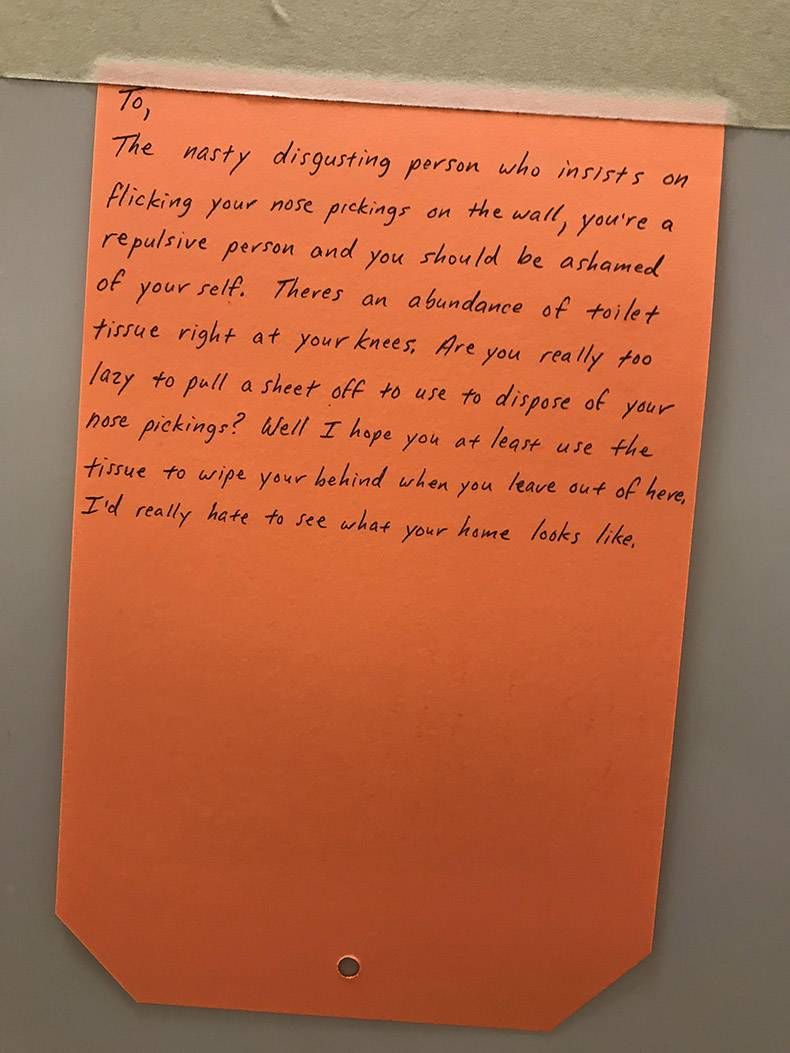 To,
The nasty disgusting person who insists on
flicking your nose pickings on the wall, you're a
repulsive person and you should be ashamed
of your self. Theres an abundance of toilet
tissue right at your knees. Are you really too
lazy to pull a sheet off to use to dispose of your
nose pickings? Well I hope you at least use the
tissue to wipe your behind when you leave out of here.
I'd really hate to see what your home looks like.